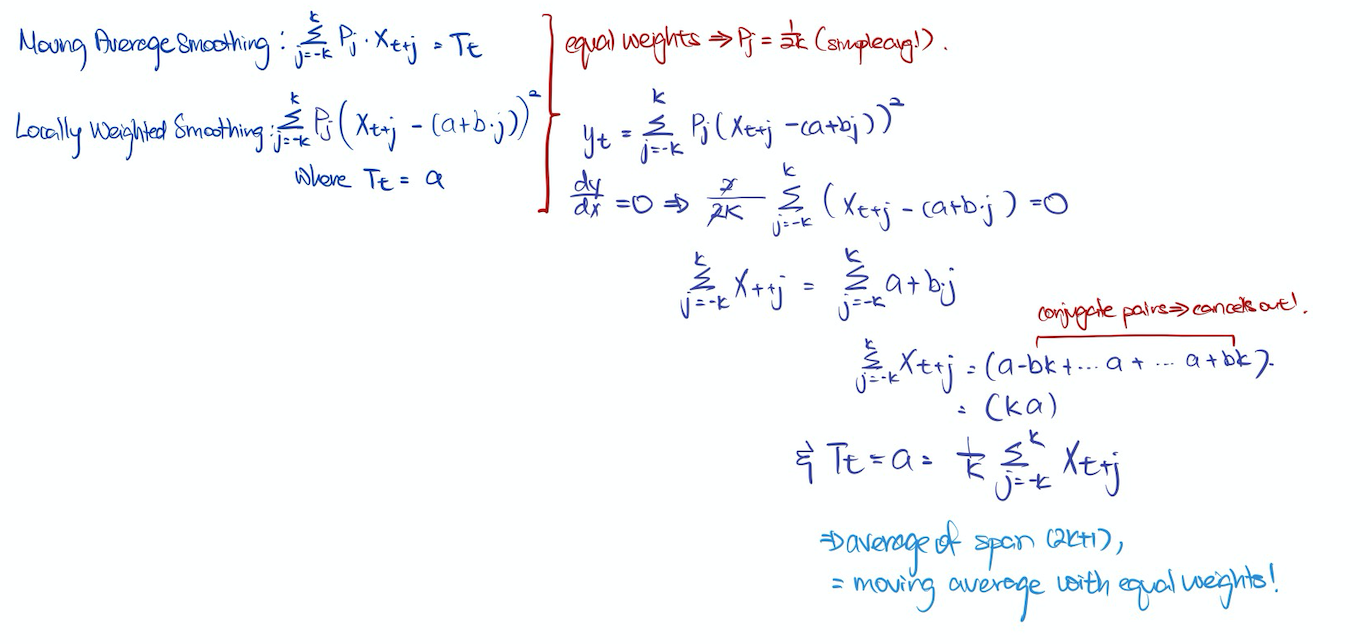 Moving Average Smoothing : \sum_{j=-k}^{k} P_j \cdot X_{t+j} = T_t
Locally Weighted Smoothing : \sum_{j=-k}^{k} P_j (X_{t+j} - (a+b \cdot j))^2
where T_t = a
equal weights ⇒ P_j = \frac{1}{2k} (simple avg!).
y_t = \sum_{j=-k}^{k} P_j (X_{t+j} - (a+bj))^2
\frac{dy}{dx} = 0 ⇒ \frac{2}{2k} \sum_{j=-k}^{k} (X_{t+j} - (a+b \cdot j) = 0
\sum_{j=-k}^{k} X_{t+j} = \sum_{j=-k}^{k} a + b \cdot j
conjugate pairs ⇒ cancels out!.
\sum_{j=-k}^{k} X_{t+j} = (a-bk + ... a + ... a+bk).
= (ka)
& T_t = a = \frac{1}{k} \sum_{j=-k}^{k} X_{t+j}
⇒ average of span (2k+1),
= moving average with equal weights!